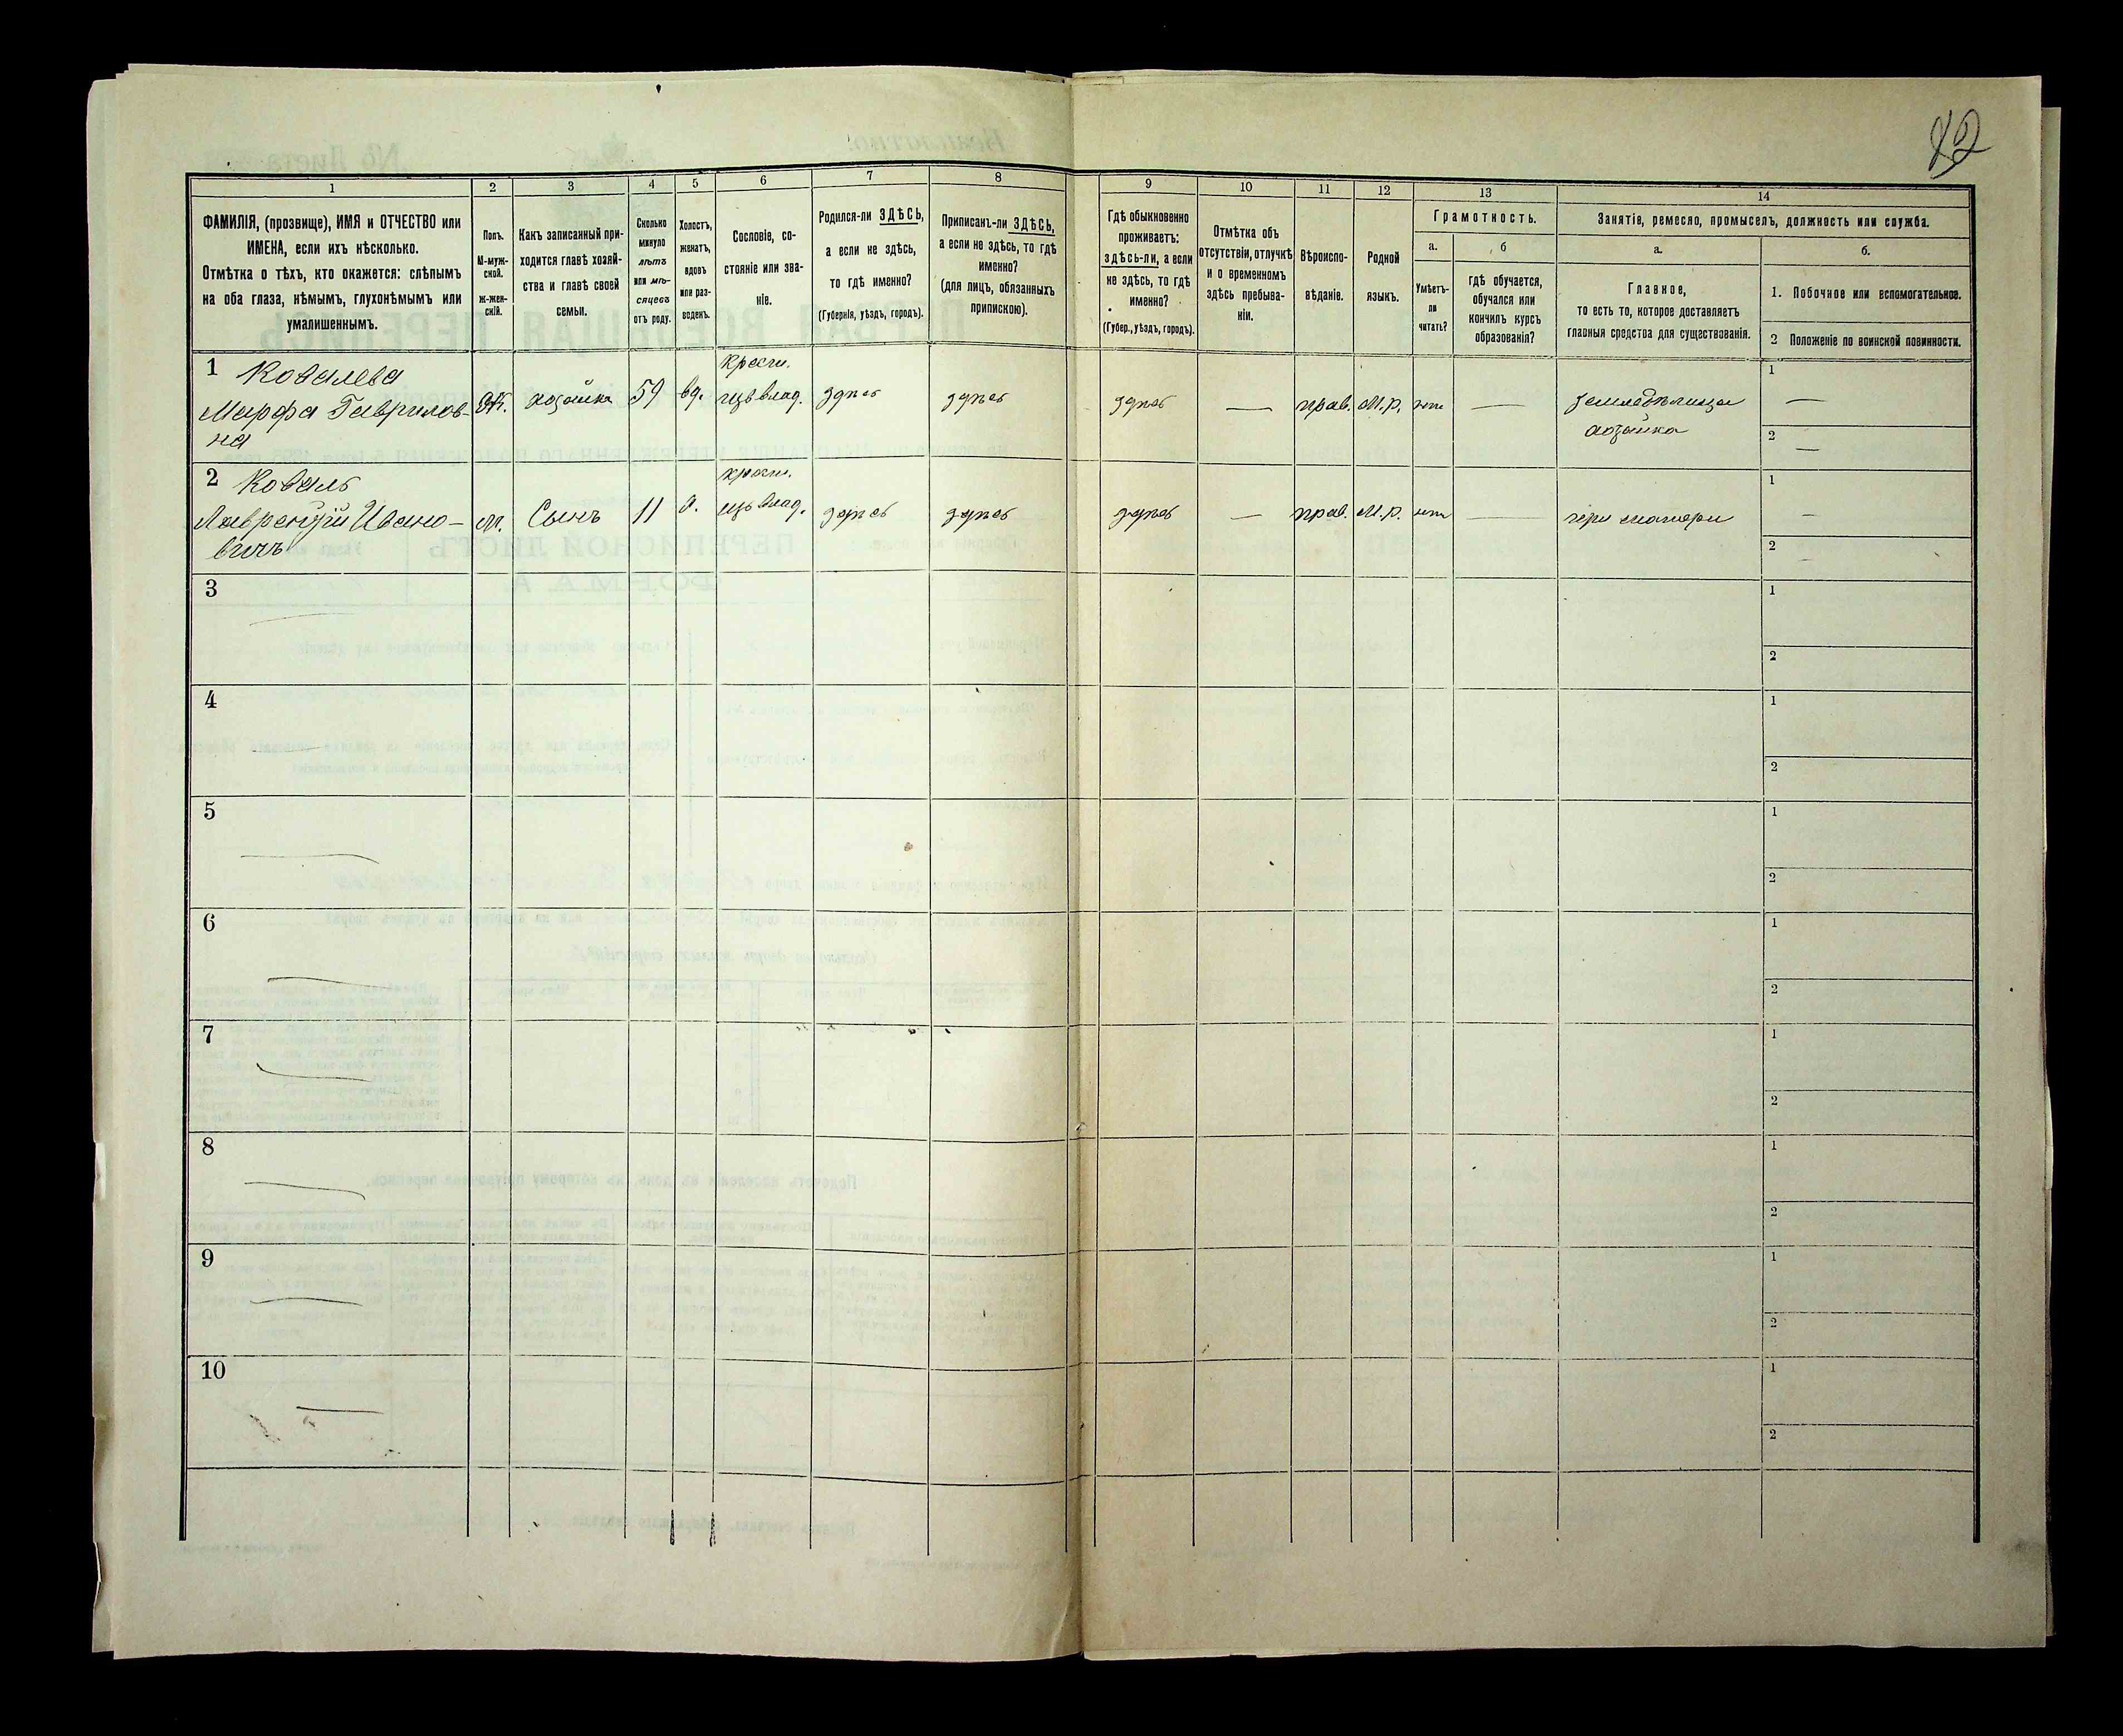 42
1
2
3
4
5
6
7
8
9
10
11
12
13
14
ФАМИЛІЯ, (прозвище), ИМЯ и ОТЧЕСТВО или
ИМЕНА, если ихъ нѣсколько.
Отмѣтка о тѣхъ, кто окажется: слѣпымъ
на оба глаза, нѣмымъ, глухонѣмымъ или
умалишеннымъ.
Полъ.
М-муж-
ской.
ж-жен-
скій.
Какъ записанный при-
ходится главѣ хозяй-
ства и главѣ своей
семьи.
Сколько
минуло
лѣтъ
или мѣ-
сяцевъ
отъ роду.
Холостъ,
женатъ,
вдовъ
или раз-
веденъ.
Сословіе, со-
стояніе или зва-
ніе.
Родился-ли ЗДѢСЬ,
а если не здѣсь,
то гдѣ именно?
(Губернія, уѣздъ, городъ).
Приписанъ-ли ЗДѢСЬ,
а если не здѣсь, то гдѣ
именно?
(для лицъ, обязанныхъ
припискою).
Гдѣ обыкновенно
проживаетъ:
здѣсь-ли, а если
не здѣсь, то гдѣ
именно?
(Губер., уѣздъ, городъ).
Отмѣтка объ
отсутствіи, отлучкѣ
и о временномъ
здѣсь пребыва-
ніи.
Вѣроиспо-
вѣданіе.
Родной
языкъ.
Грамотность.
а.
б
Умѣетъ-
ли
читать?
гдѣ обучается,
обучался или
кончилъ курсъ
образованія?
Занятіе, ремесло, промыселъ, должность или служба.
а.
б.
Главное,
то есть то, которое доставляетъ
главныя средства для существованія.
1. Побочное или вспомогательное.
2 Положеніе по воинской повинности.
1 Ковалева
Марфа Гаврилов-
на
Ж.
хозяйка
59
вд.
крест.
здѣсь
здѣсь
здѣсь
—
прав.
М.р.
нѣтъ
—
хозяйка
1
—
2
—
2 Коваль
Лаврентій Ивано-
вичъ
м.
Сынъ
11
х.
крест.
здѣсь
здѣсь
здѣсь
—
прав.
М.р.
нѣтъ
—
при матери
1
—
2
—
3
1
2
4
1
2
5
1
2
6
1
2
7
1
2
8
1
2
9
1
2
10
1
2